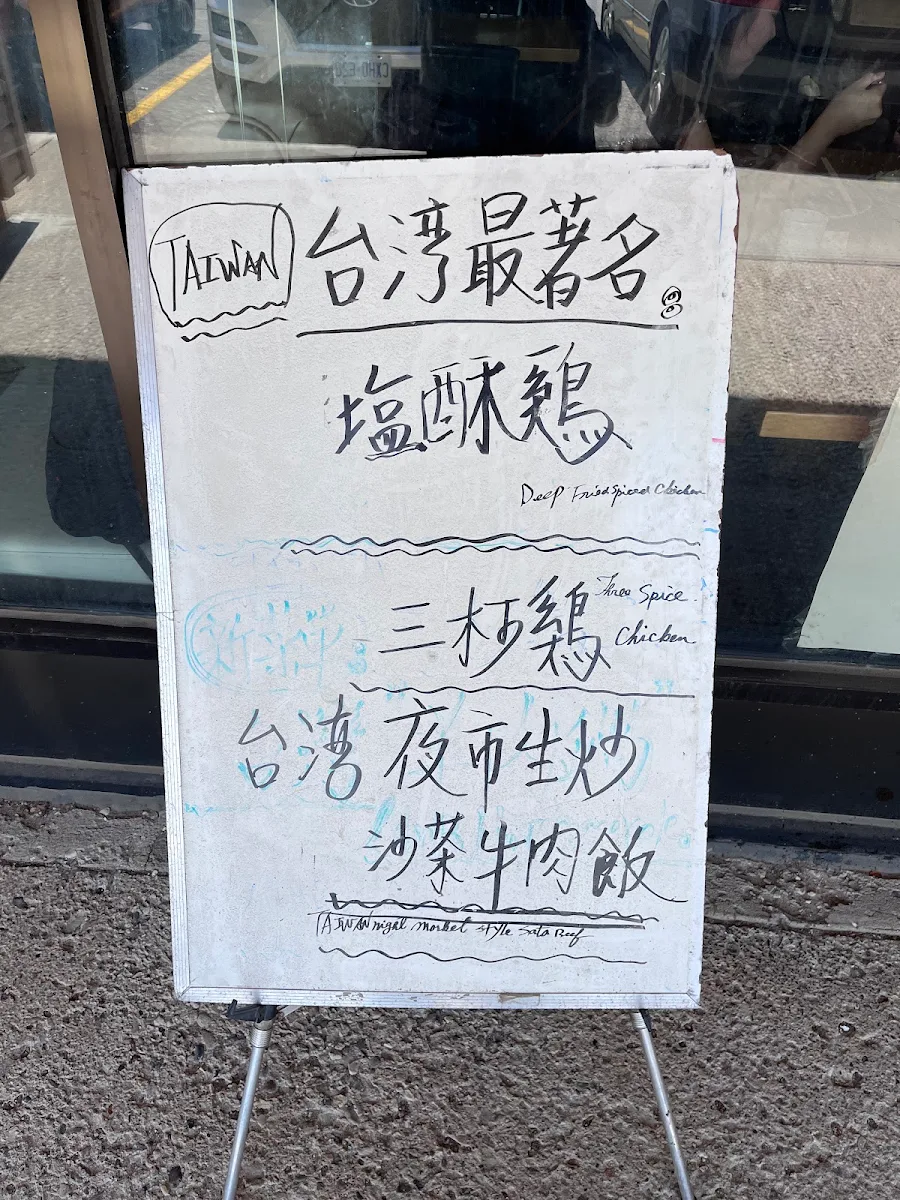 TAIWAN 台湾最著名
塩酥鷄
Deep Fried Spiced Chicken
三杯鷄 Three Spice
Chicken
台湾夜市生炒
沙茶牛肉飯
TAIWAN night market style Sata Beef